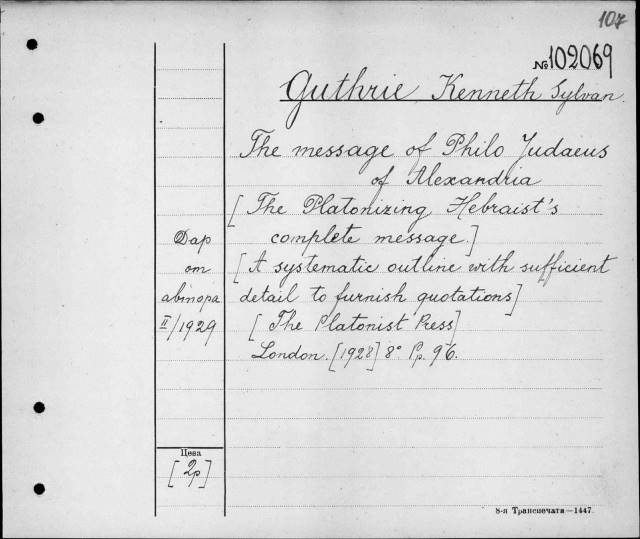 107
№ 102069
Guthrie Kenneth Sylvan.
The message of Philo Judaeus
of Alexandria
[The Platonizing Hebraist's
complete message]
[A systematic outline with sufficient
detail to furnish quotations]
[The Platonist Press]
London. [1928] 8° Pp. 96.
Дар
от
автора
II/1929
Цена
[2р]
8-я Транспечати—1447.